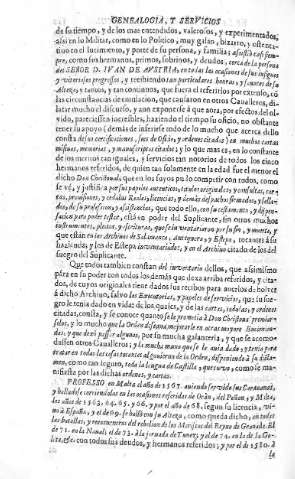 GENEALOGIA, Y SERVICIOS
de su tiempo, y de los mas entendidos, valerosos, y experimentados,
assi en lo Militar, como en lo Politico, y muy galan, bizarro, y
en el lucimiento, y porte de su persona, y familia; assistiò
pre, como sus hermanos, primos, sobrinos, y deudos, cerca de la persona
del SEÑOR D. IVAN DE AVSTRIA, en todas las ocasiones de sus insignes
y vitoriosos progressos, y recibiendo tan particulares honras, y favores de su
Alteza, y tantos, y tan continuos, que fuera el referirlos por extenso, cõ
las circunstancias de emulacion, que causaron en otros Cavalleros, di-
latar mucho el discurso, y aun exponerle à que aora, por efectos del ol-
vido, pareciesse increible, haziendo el tiempo su oficio, no obstante
tener su apoyo (demàs de inferirse todo de lo mucho que acerca dello
consta de sus certificaciones, fees de Oficios, y ordenes citadas) en muchas cartas
missivas, memorias, y manuscriptos citados; y lo que mas es, en lo constante
de los meritos tan iguales, y servicios tan notorios de todos los cinco
hermanos referidos, de quien tan solamente en la edad fue el menor el
dicho Don Christoval; que en los suyos pudo competir con todos, como
se vè, y justifica por sus papeles autenticos, titulos originales, y consultas,
provisiones, y cedulas Reales, licencias, y demàs del
dos, de su profession, y assistencias, que todo ello, con su testamento, y
para poder testar, està en poder del Suplicante, con otros muchos
instrumentos, pleytos, y escrituras, que se inventariaron por su fin, y muerte, y
que estàn en los Archivos de Salamanca, Antequera, y Estepa, tocantes à su
hazienda; y los de Estepa inventariados, y en el Archivo citado de los del
fuego del Suplicante.
Que todos tambien constan del inventario dellos, que assimismo
para en su poder con todos los demàs que dexa arriba referidos, y cita-
dos, de cuyos originales tiene dados sus recibos para averlos de bolver
à dicho Archivo, salvo los Executorias, y papeles de servicios, que
gre le tenia dado en vida: de los quales, y de las cartas, cedulas, y ordenes
citadas, consta, y se conoce quanto se le premiò à Don Christoval
y lo mucho que la Orden desseava mejorarle en otras mayores Encomien-
das, y que de èl passasse algunas, por su mucha galanteria, y que se acomo-
dassen otros Cavalleros; y la mucha mano que se le avia dado, y tenia para
tratar en todas las cosas tocantes al govierno de la Orden, difiriendo à su dicta-
men, con tan seguro, toda la lengua de Castilla, y que tuvo, como le ma-
nifiesta por las dichas ordenes, y cartas.
PROFESSÒ en Malta el año de 1567. aviendo servido sus Caravanas,
y hallandose servido en las ocasiones referidas de Oràn, del Peñon, y Malta,
los años de 1563. 64. 65. y 66. y por el año de 68. segun su licencia,
à España, y el de 69. se hallò con su Alteza, como queda dicho, en todas
las batallas, y reencuentros del rebelion de los Moriscos del Reyno de Granada. El
de 71. en la Naval: el de 73. à la jornada de Tunez; y el de 74. en la de la Go-
leta, &c. con todos sus deudos, y hermanos referidos; y por el de 1580. à
la